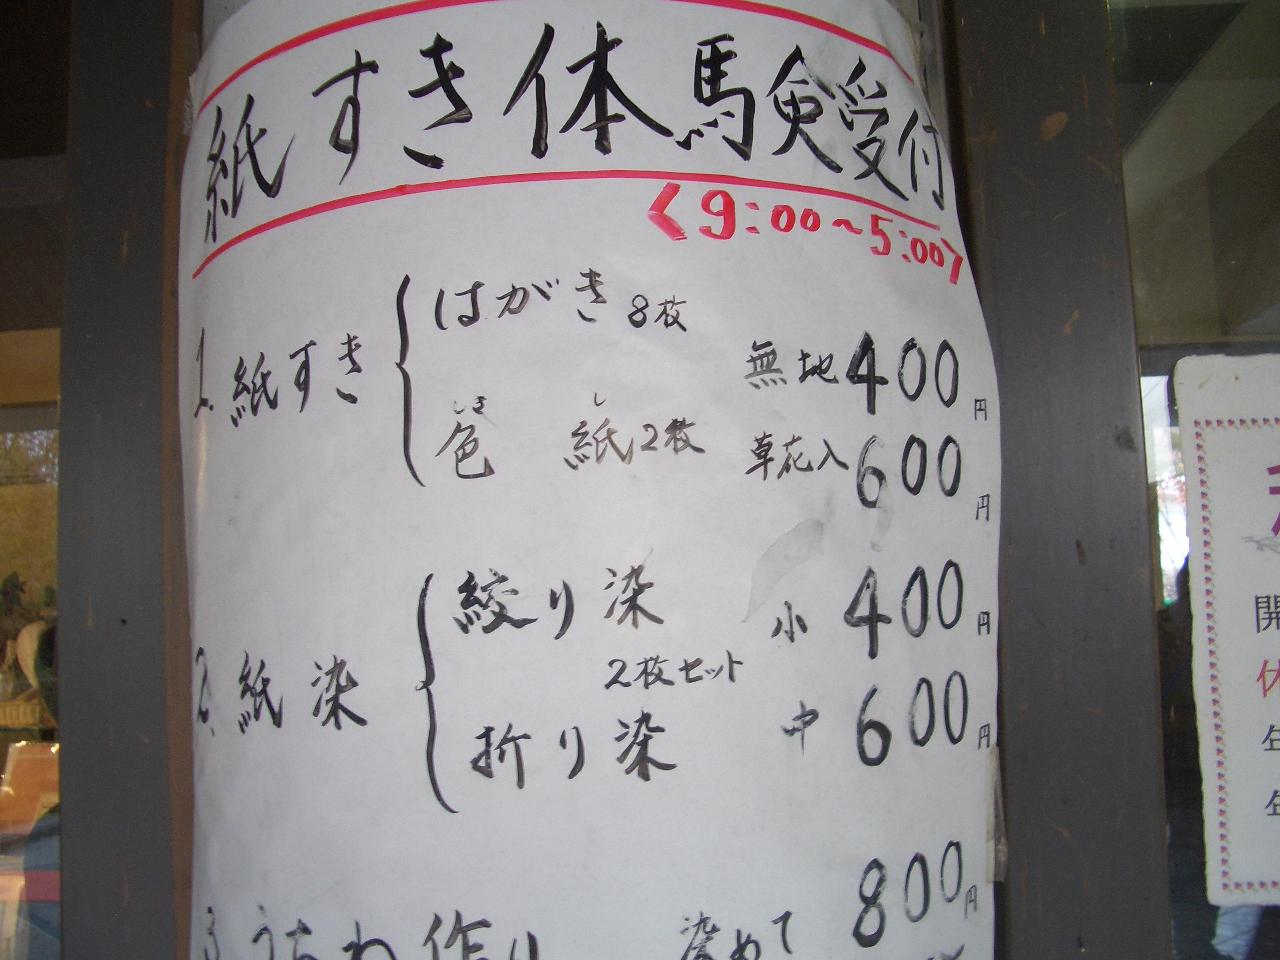 紙すき体験受付
〈9:00～5:00〉
1. 紙すき
はがき 8枚
色紙 2枚
しき し
無地 400円
草花入 600円
2. 紙染
絞り染
2枚セット
折り染
小 400円
中 600円
3 うちわ作り 染めて 800円
開
休
年
年